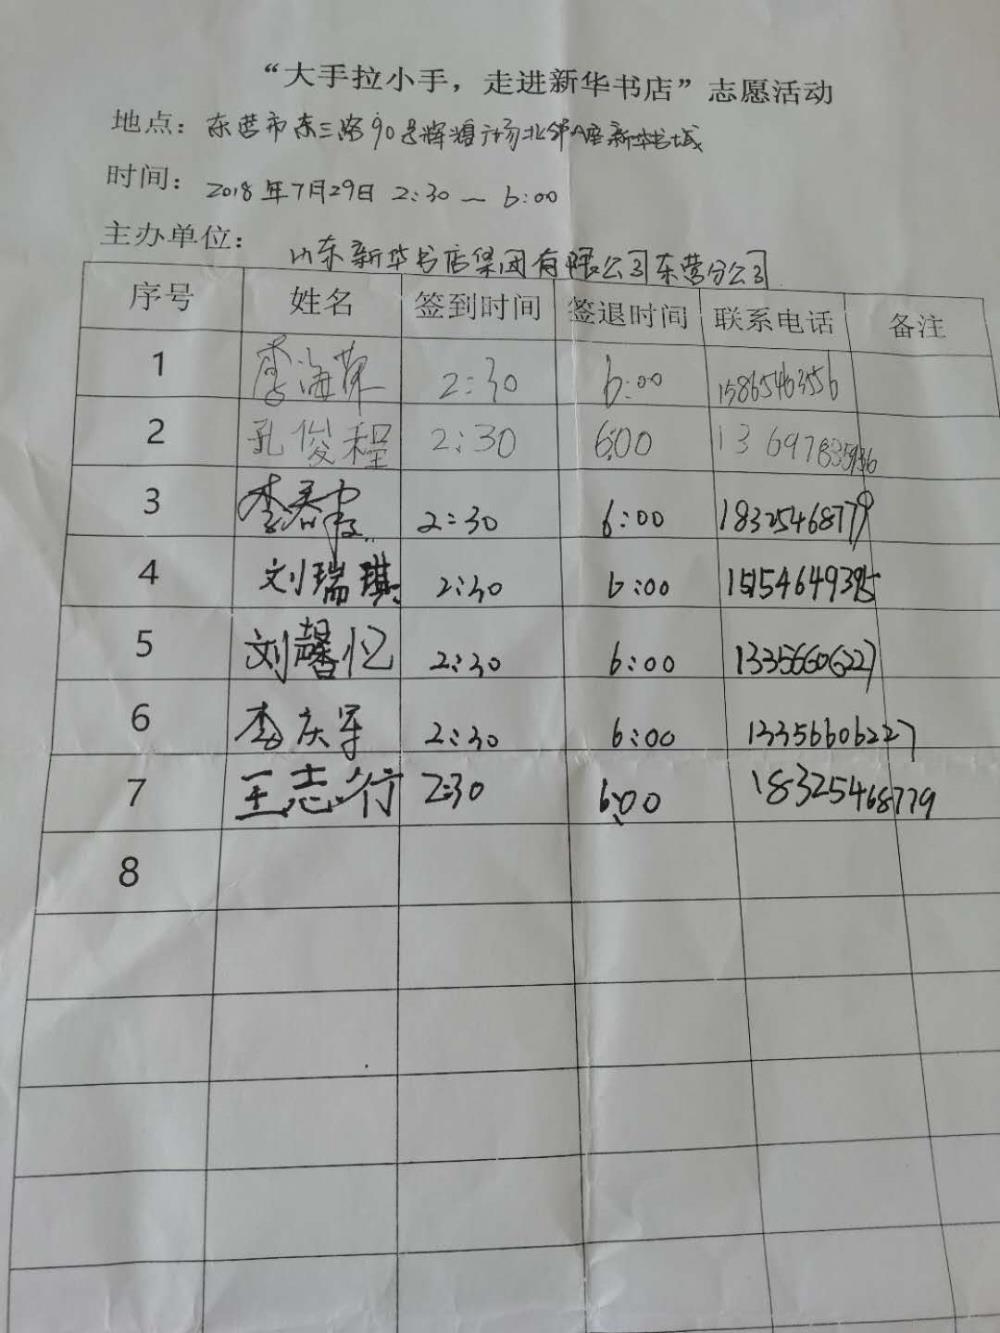 “大手拉小手，走进新华书店”志愿活动
地点：东营市东三路90号辉煌广场北邻A座新华书城
时间：2018年7月29日 2:30 — 6:00
主办单位：山东新华书店集团有限公司东营分公司
序号 姓名 签到时间 签退时间 联系电话 备注
1 李海萍 2:30 6:00 15865463556
2 孔俊程 2:30 6:00
3 李春霞 2:30 6:00 18325468779
4 刘瑞琪 2:30 6:00
5 刘馨忆 2:30 6:00 13356606227
6 李庆军 2:30 6:00 13356606227
7 王志行 2:30 6:00 18325468779
8